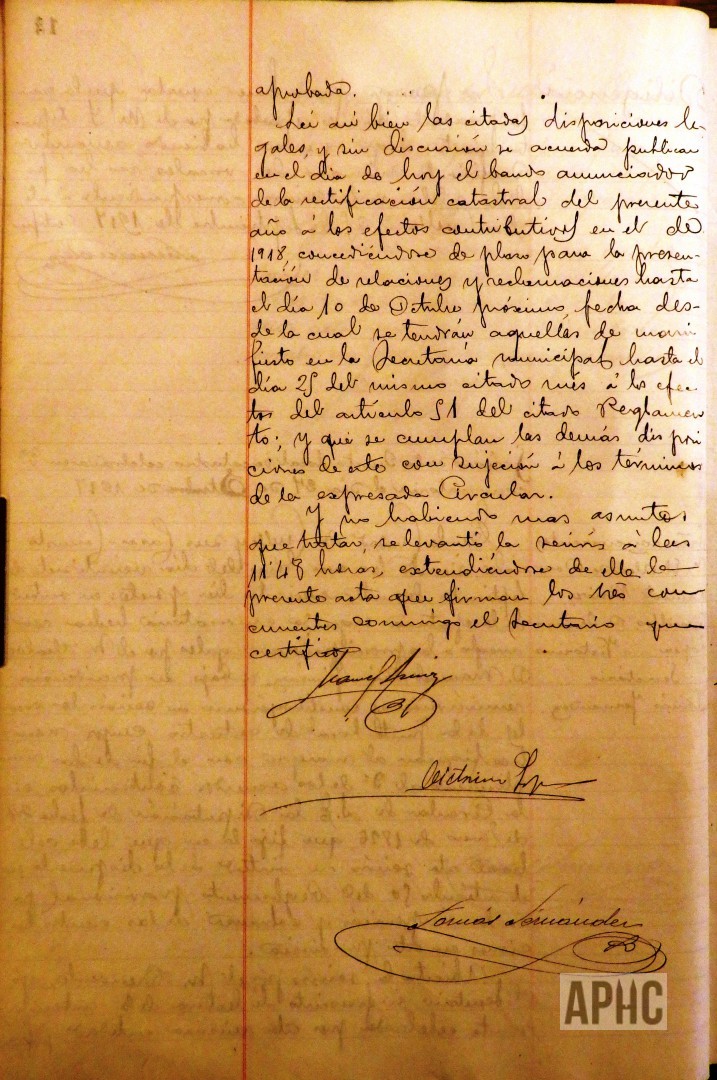 aprobada.
Leí así bien las citadas disposiciones le-
gales, y sin discusión se acuerda publicar
en el día de hoy el bando anunciador
de la rectificación catastral del presente
año á los efectos contributivos en el de
1918, concediéndose de plazo para la presen-
tación de relaciones y reclamaciones hasta
el día 10 de Octubre próximo, fecha des-
de la cual se tendrán aquellas de mani
fiesto en la Secretaría municipal hasta el
día 25 del mismo citado mes á los efec
tos del artículo 51 del citado Reglamen
to; y que se cumplan las demás dispo
ciones de este con sujeción á los términos
de la expresada Circular.
Y no habiendo mas asuntos
que tratar, se levantó la sesión á las
11'45 horas, extendiéndose de ella la
presente acta que firman los tres con
currentes conmigo el Secretario que
certifico
Victorino Lop
Tomás Fernández
APHC